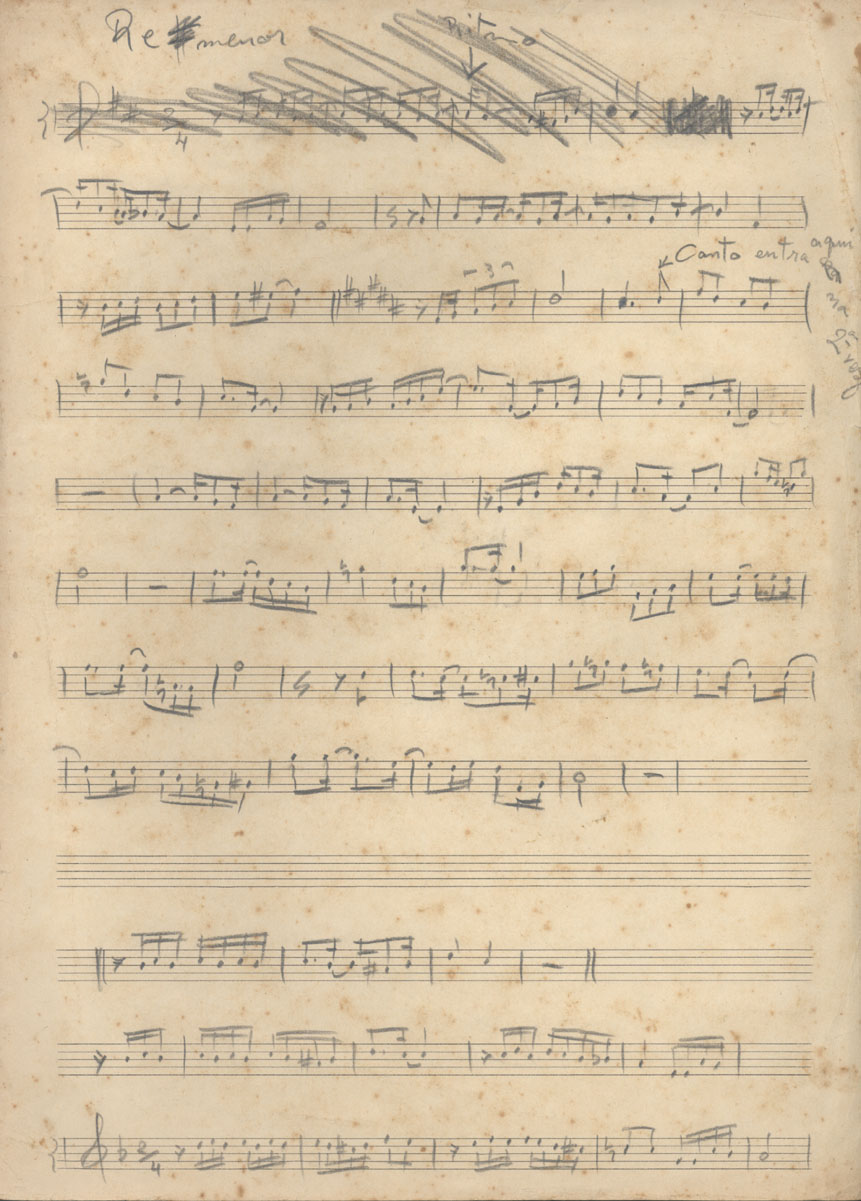 Re # menor
Ritmo
2/4
3
Canto entra aqui
na
2ª vez
2/4